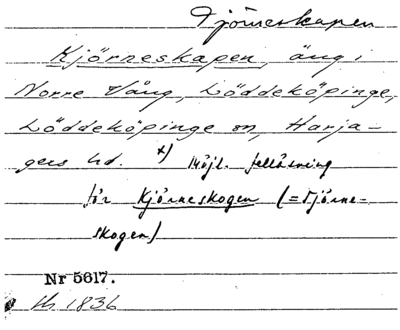 Tjörneskapen
Kjörneskapen, äng i
Norre Vång, Löddeköpinge,
Löddeköpinge sn, Harja-
gers hd. x) Möjl. felläsning
för Kjörneskogen (=Tjörne-
skogen)
Nr 5617.
1836